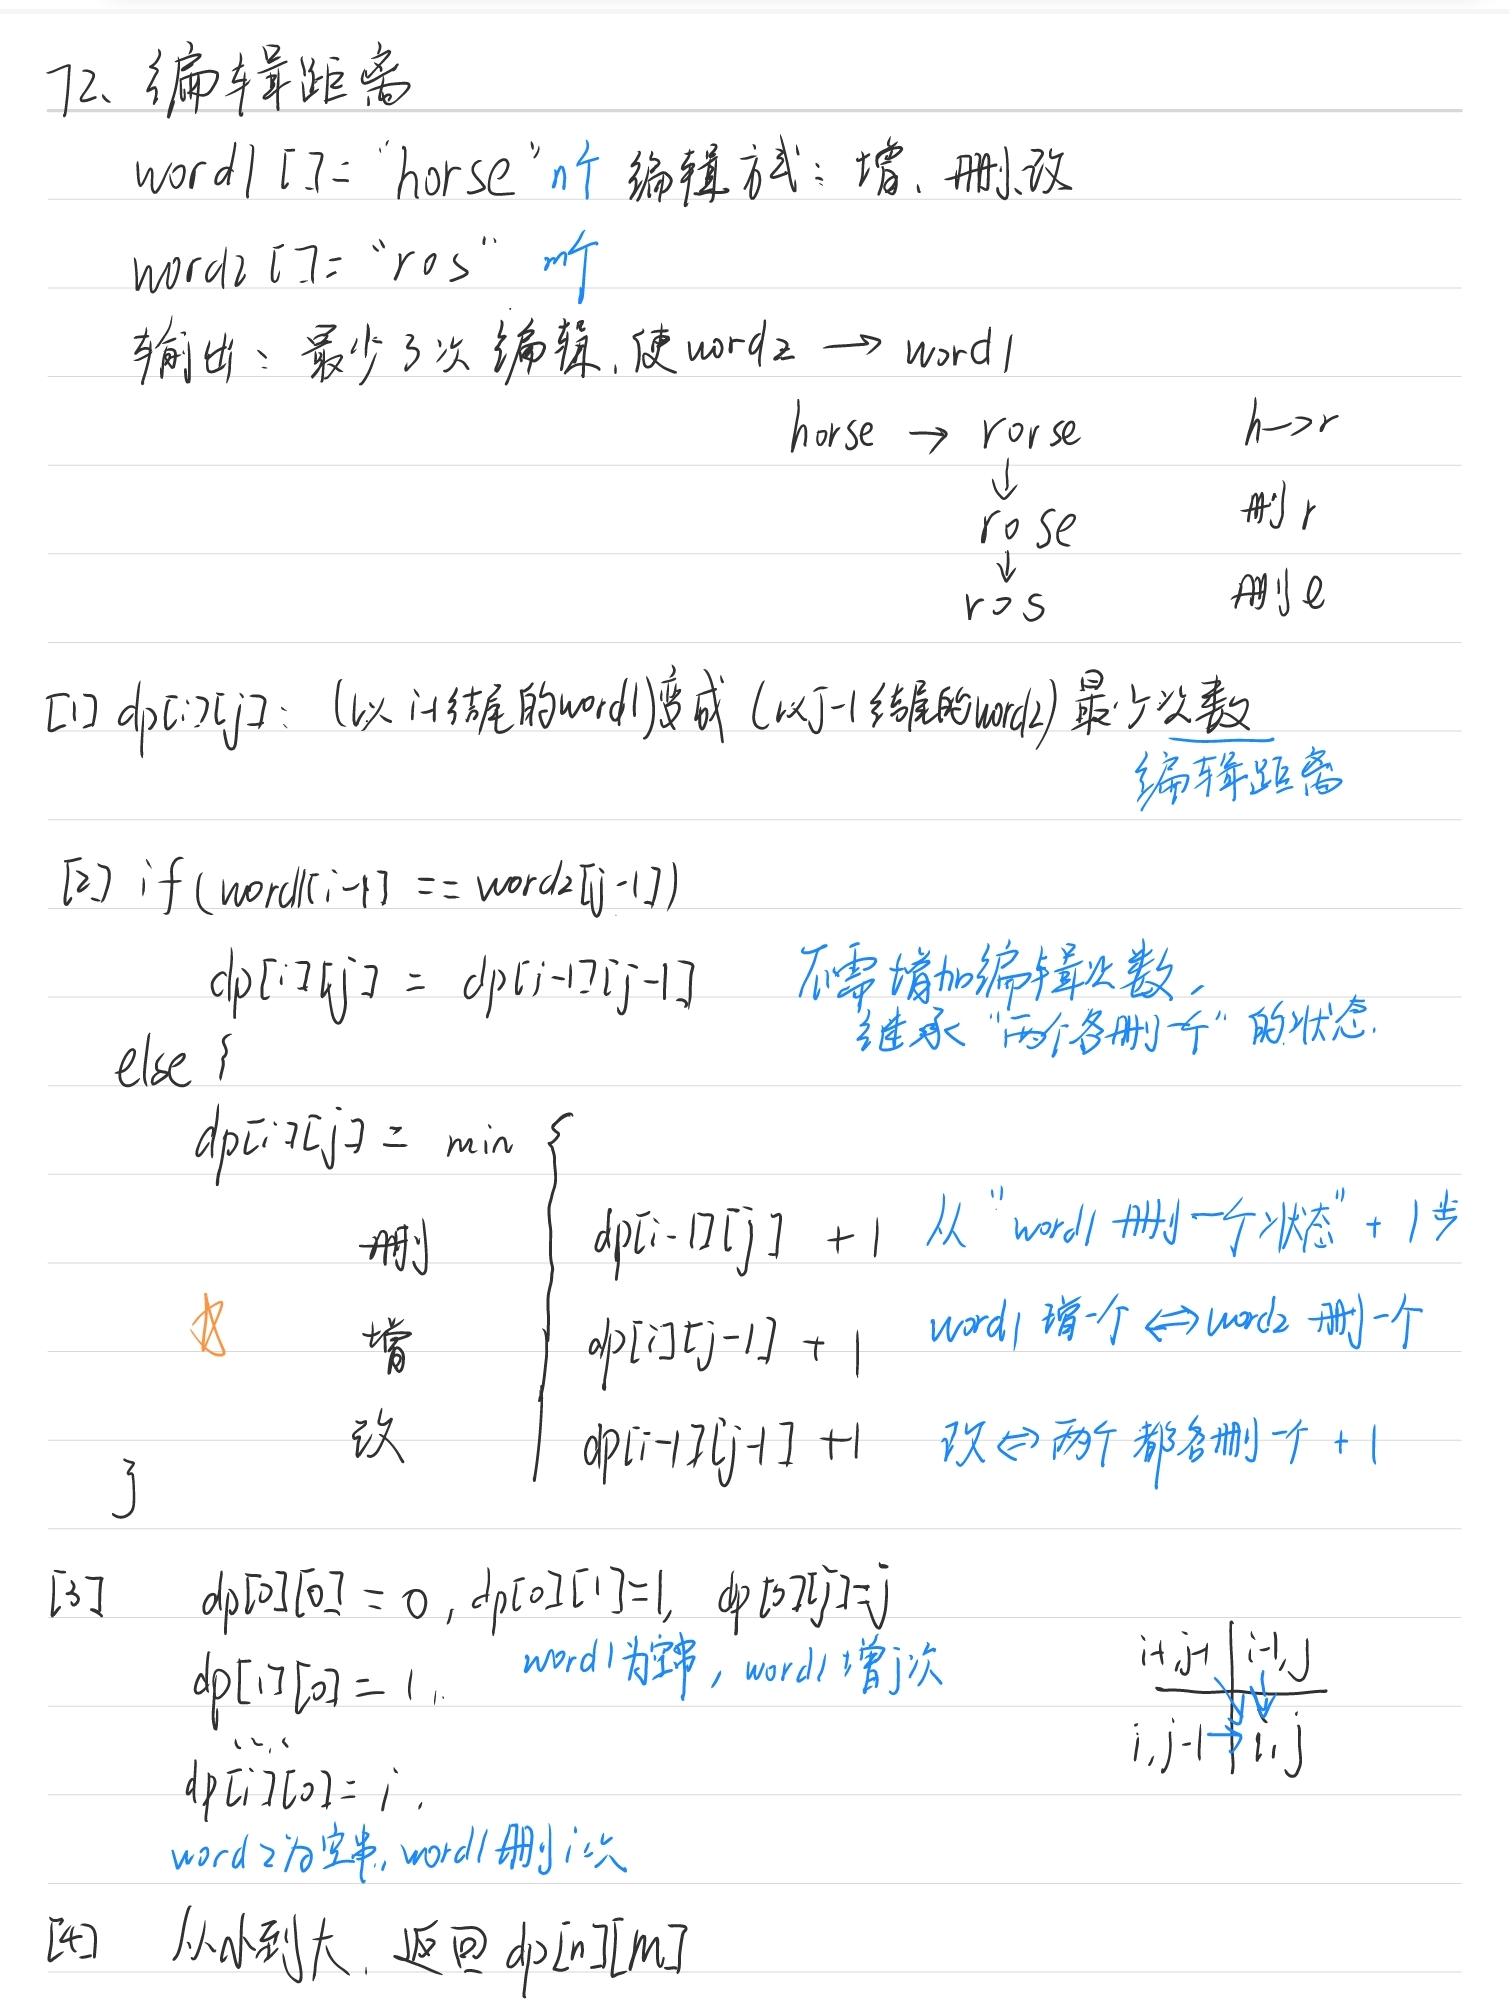 72、编辑距离
word1[]="horse" n个 编辑方式：增、删、改
word2[]="ros" m个
输出：最少3次编辑，使word2 → word1
horse → rorse h→r
↓
rose 删r
↓
ros 删e
[1] dp[i][j]：(以i-1结尾的word1)变成(以j-1结尾的word2)最少次数
编辑距离
[2] if(word1[i-1] == word2[j-1])
dp[i][j] = dp[i-1][j-1] 不需增加编辑次数，
继承“两个各删一个”的状态.
else {
dp[i][j] = min {
删 dp[i-1][j] +1 从“word1删一个状态”+1步
☆ 增 dp[i][j-1] +1 word1增一个⇔word2删一个
改 dp[i-1][j-1] +1 改⇔两个都各删一个+1
}
[3] dp[0][0]=0, dp[0][1]=1, dp[0][j]=j
word1为空串，word1增j次
dp[1][0]=1.
......
dp[i][0]=i.
word2为空串，word1删i次
i-1,j-1 i-1,j
i,j-1 → i,j
[4] 从小到大，返回dp[n][m]